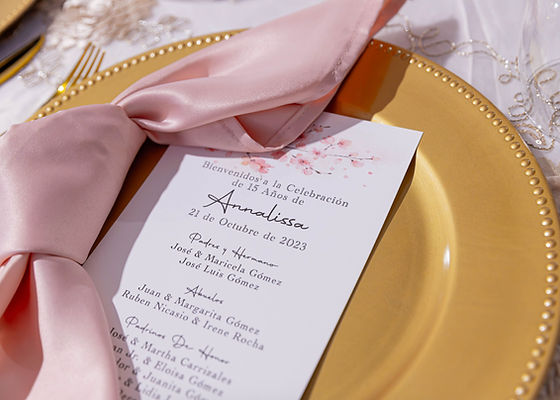 Bienvenidos a la Celebración
de 15 Años de
Annalissa
21 de Octubre de 2023
Padres y Hermano
José & Maricela Gómez
José Luis Gómez
Abuelos
Juan & Margarita Gómez
Ruben Nicasio & Irene Rocha
Padrinos De Honor
José & Martha Carrizales
Jr. & Eloisa Gómez
& Juanita Gómez
& Lidia